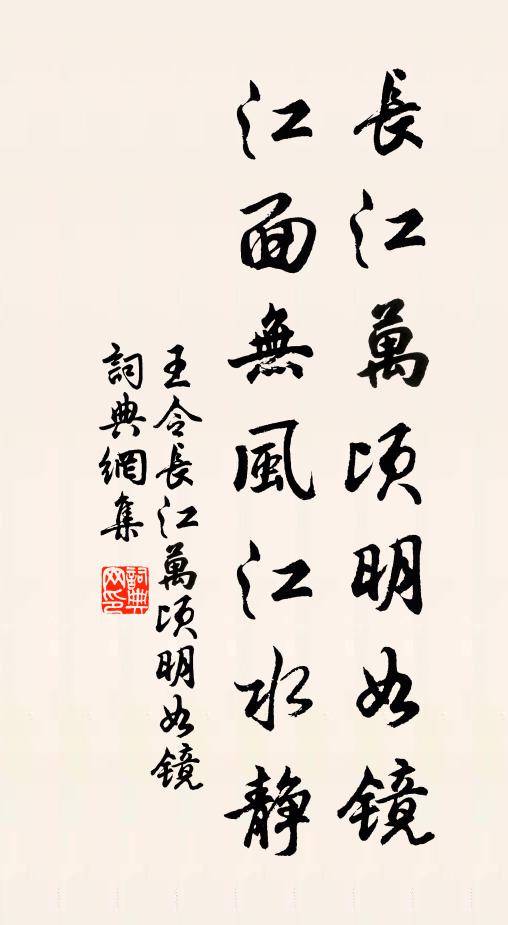 長江萬頃明如鏡
江面無風江水靜
王令長江萬頃明如鏡
詞典網集
詞典
网印